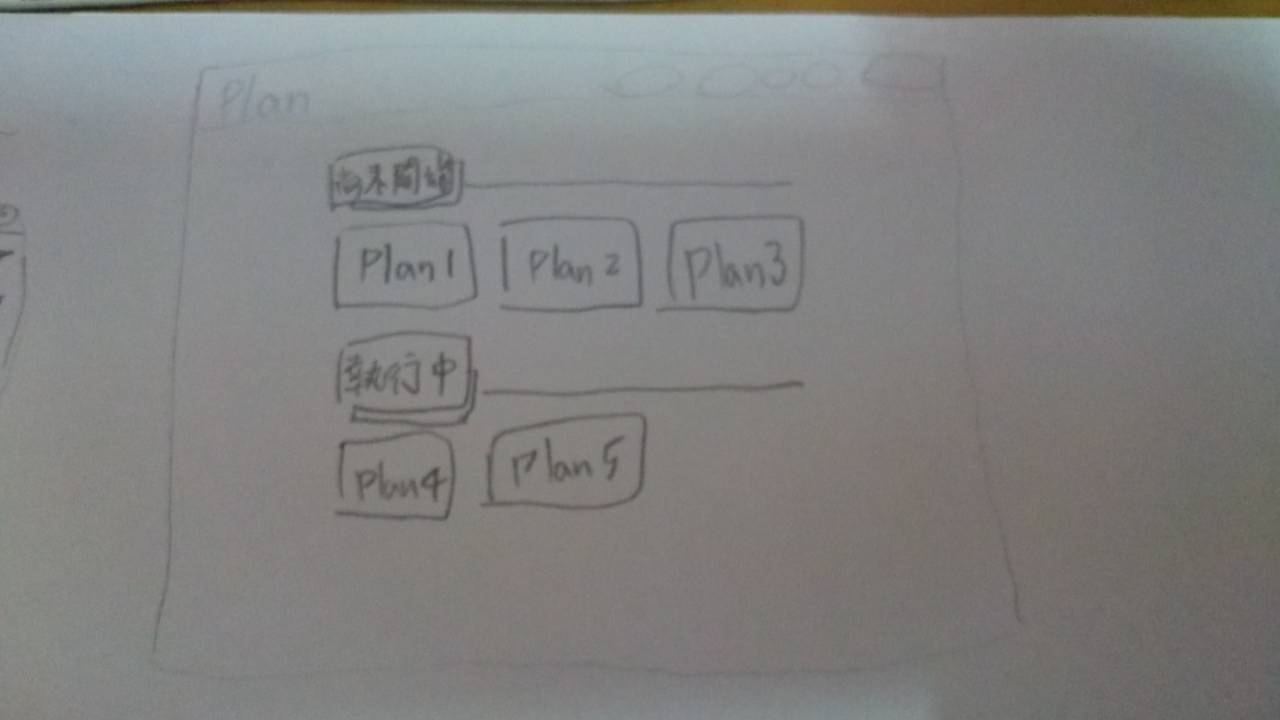 Plan
尚未開始
Plan1 Plan2 Plan3
執行中
Plan4 Plan5